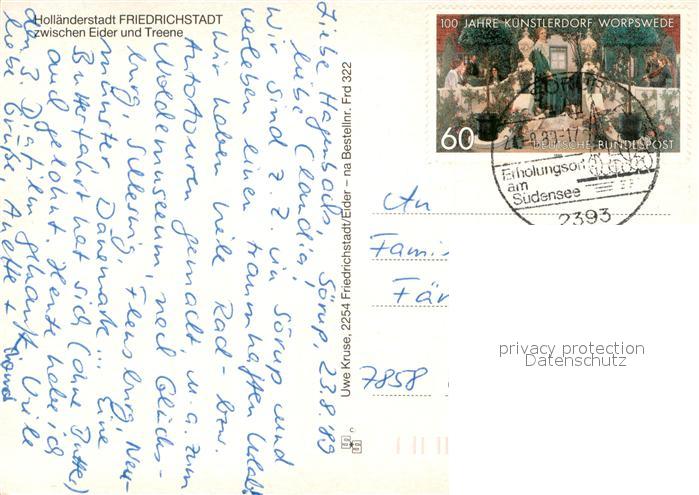 Holländerstadt FRIEDRICHSTADT
zwischen Eider und Treene
Liebe Hagenbachs, Sörup, 23.8.89
liebe Claudia!
Wir sind z. Z. in Sörup und
verleben einen traumhaften Urlaub
Wir haben viele Rad- bzw.
Autotouren gemacht, u.a. zum
Noldemuseum, nach Glücks-
burg, Schleswig, Flensburg, Neu-
münster, Dänemark... Eine
Butterfahrt hat sich (ohne Butter)
auch gelohnt. Heute habe ich
den 3. Diafilm gekauft. Viele
liebe Grüße, Anette +
Uwe Kruse, 2254 Friedrichstadt/Eider – na Bestellnr. Frd 322
100 JAHRE KÜNSTLERDORF WORPSWEDE
60
DEUTSCHE BUNDESPOST
Erholungsort
am
Südensee
2393
An
Fami
Fär
7858
privacy protection
Datenschutz